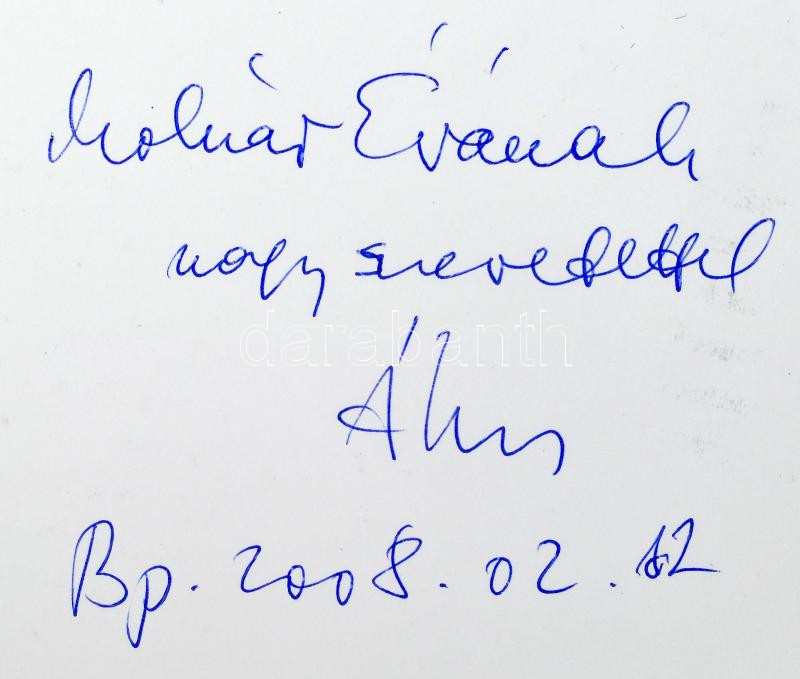 Molnár Évának
nagy szeretettel
darabanth
Bp. 2008. 02. 12